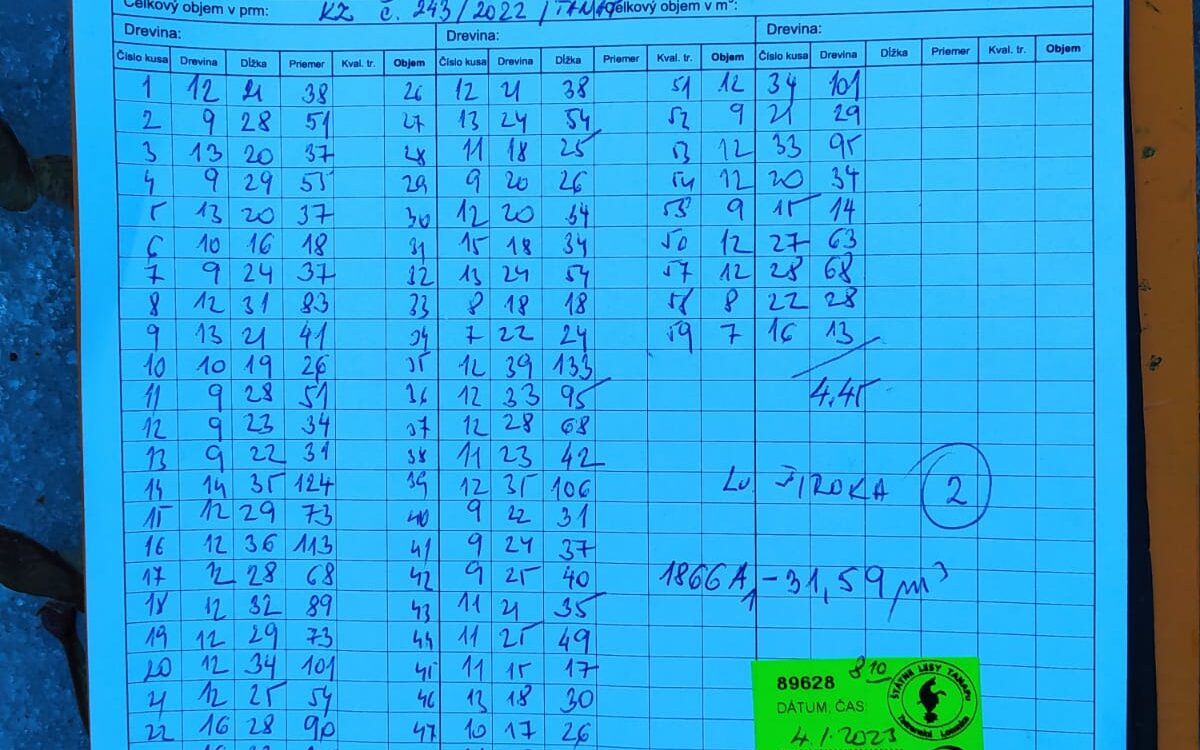 Celkový objem v prm: KZ č. 243/2022/TANAP Celkový objem v m³:
Drevina: Drevina: Drevina:
Číslo kusa Drevina Dĺžka Priemer Kval. tr. Objem Číslo kusa Drevina Dĺžka Priemer Kval. tr. Objem Číslo kusa Drevina Dĺžka Priemer Kval. tr. Objem
1 12 21 38 26 12 21 38 51 12 34 101
2 9 28 51 27 13 24 54 52 9 21 29
3 13 20 37 28 11 18 25 53 12 33 95
4 9 29 55 29 9 20 26 54 12 20 34
5 13 20 37 30 12 20 34 55 9 15 14
6 10 16 18 31 15 18 34 56 12 27 63
7 9 24 37 32 13 24 54 57 12 28 68
8 12 31 83 33 8 18 18 58 8 22 28
9 13 21 41 34 7 22 24 59 7 16 13
10 10 19 26 35 12 39 133
11 9 28 51 36 12 33 95 4,45
12 9 23 34 37 12 28 68
13 9 22 31 38 11 23 42
14 14 35 124 39 12 35 106 ŠIROKA 2
15 12 29 73 40 9 22 31
16 12 36 113 41 9 24 37
17 12 28 68 42 9 25 40 1866 A1 - 31,59 m³
18 12 32 89 43 11 21 35
19 12 29 73 44 11 25 49
20 12 34 101 45 11 15 17
21 12 25 54 46 13 18 30
22 16 28 90 47 10 17 26
89628 810
DÁTUM, ČAS:
4.1.2023
ŠTÁTNE LESY TANAPU
Tatranská Lomnica